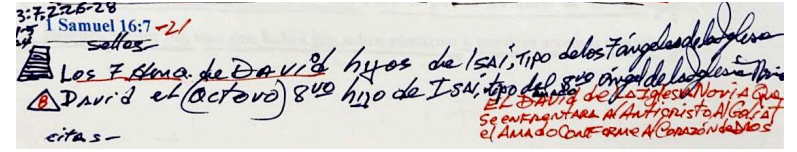 3:7, 2:26-28
1 Samuel 16:7 -21
sellos-
Los 7 Hma. de David hijos de Isaí, tipo de los 7 ángeles de la Iglesia
8 David el (octavo) 8vo hijo de Isaí, tipo del 8vo ángel de la Iglesia Novia
EL DAVID de LA Iglesia NOVIA QUE
Se enfrentara Al Anticristo Al Goliat
el AMADO CONFORME Al CORAZÓN de DIOS
citas-